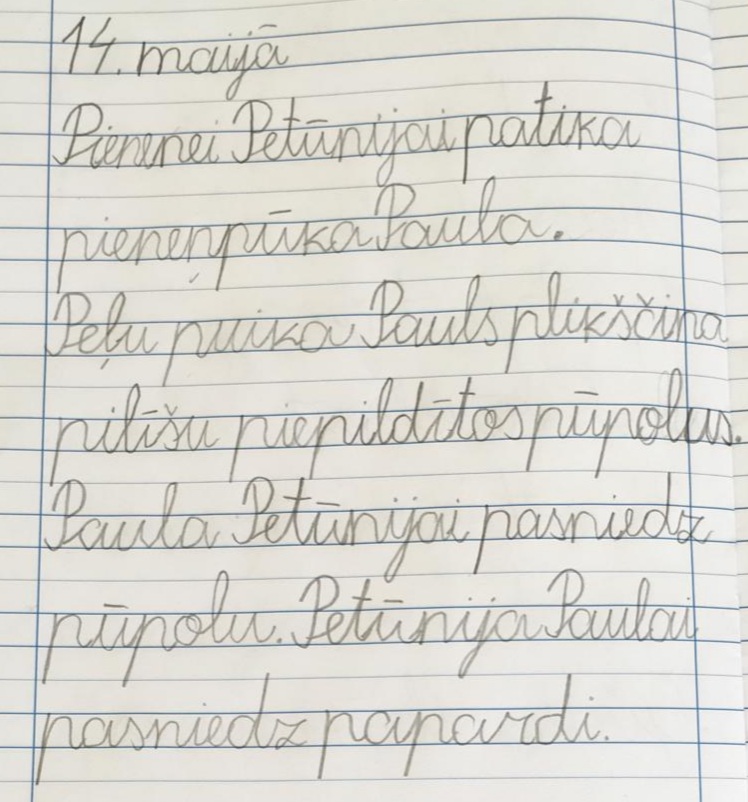 14. maijā
Pienenei Petūnijai patika
pieneņpūka Paula.
Peļu puika Pauls plikšķina
pilīšu piepildītos pūpolus.
Paula Petūnijai pasniedz
pūpolu. Petūnija Paulai
pasniedz papardi.